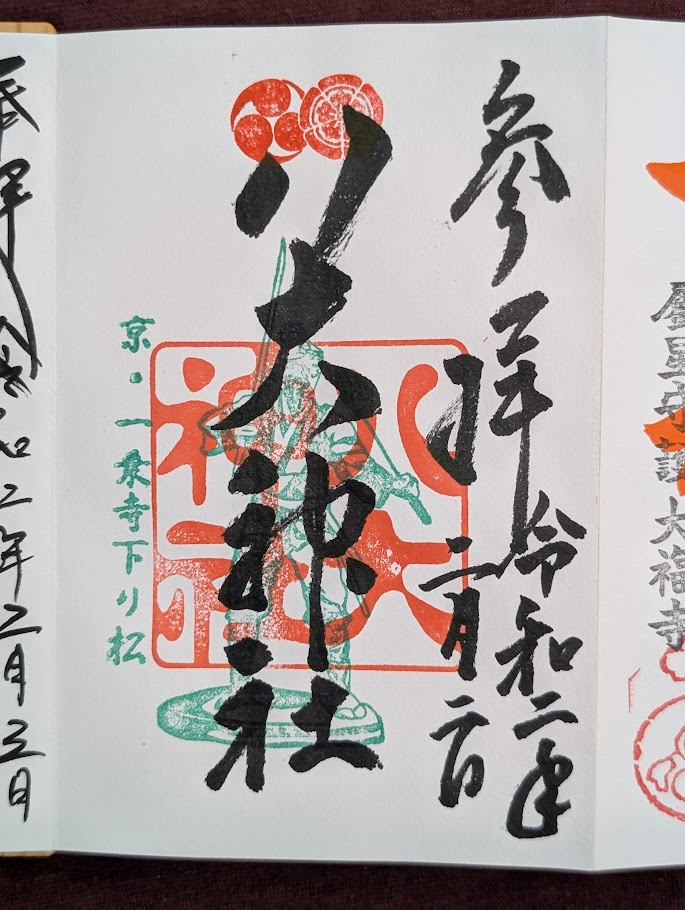 参拝
令和二年
二月二日
八大神社
八大
神社
京・一乗寺下り松
奉拝
令和二年二月三日
大福寺